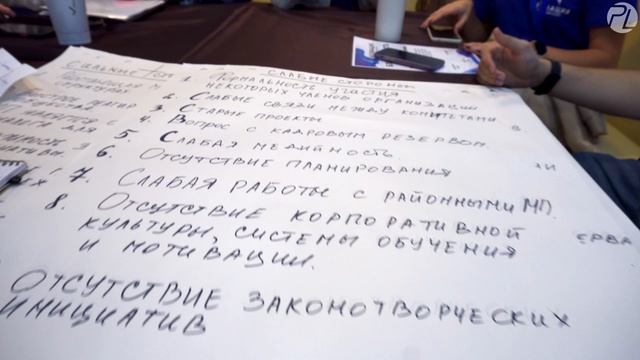 СЛАБЫЕ СТОРОНЫ
1. ФОРМАЛЬНОСТЬ УЧАСТИЯ
НЕКОТОРЫХ ЧЛЕНОВ ОРГАНИЗАЦИИ
2. СЛАБЫЕ СВЯЗИ МЕЖДУ КОМИТЕТАМИ.
3. СТАРЫЕ ПРОЕКТЫ
4. ВОПРОС С КАДРОВЫМ РЕЗЕРВОМ.
5. СЛАБАЯ МЕДИЙНОСТЬ.
6. ОТСУТСТВИЕ ПЛАНИРОВАНИЯ
7. СЛАБАЯ РАБОТЫ С РАЙОННЫМИ МП.
8. ОТСУТСТВИЕ КОРПОРАТИВНОЙ
КУЛЬТУРЫ, СИСТЕМЫ ОБУЧЕНИЯ
И МОТИВАЦИИ.
ОТСУТСТВИЕ ЗАКОНОТВОРЧЕСКИХ
ИНИЦИАТИВ
PL